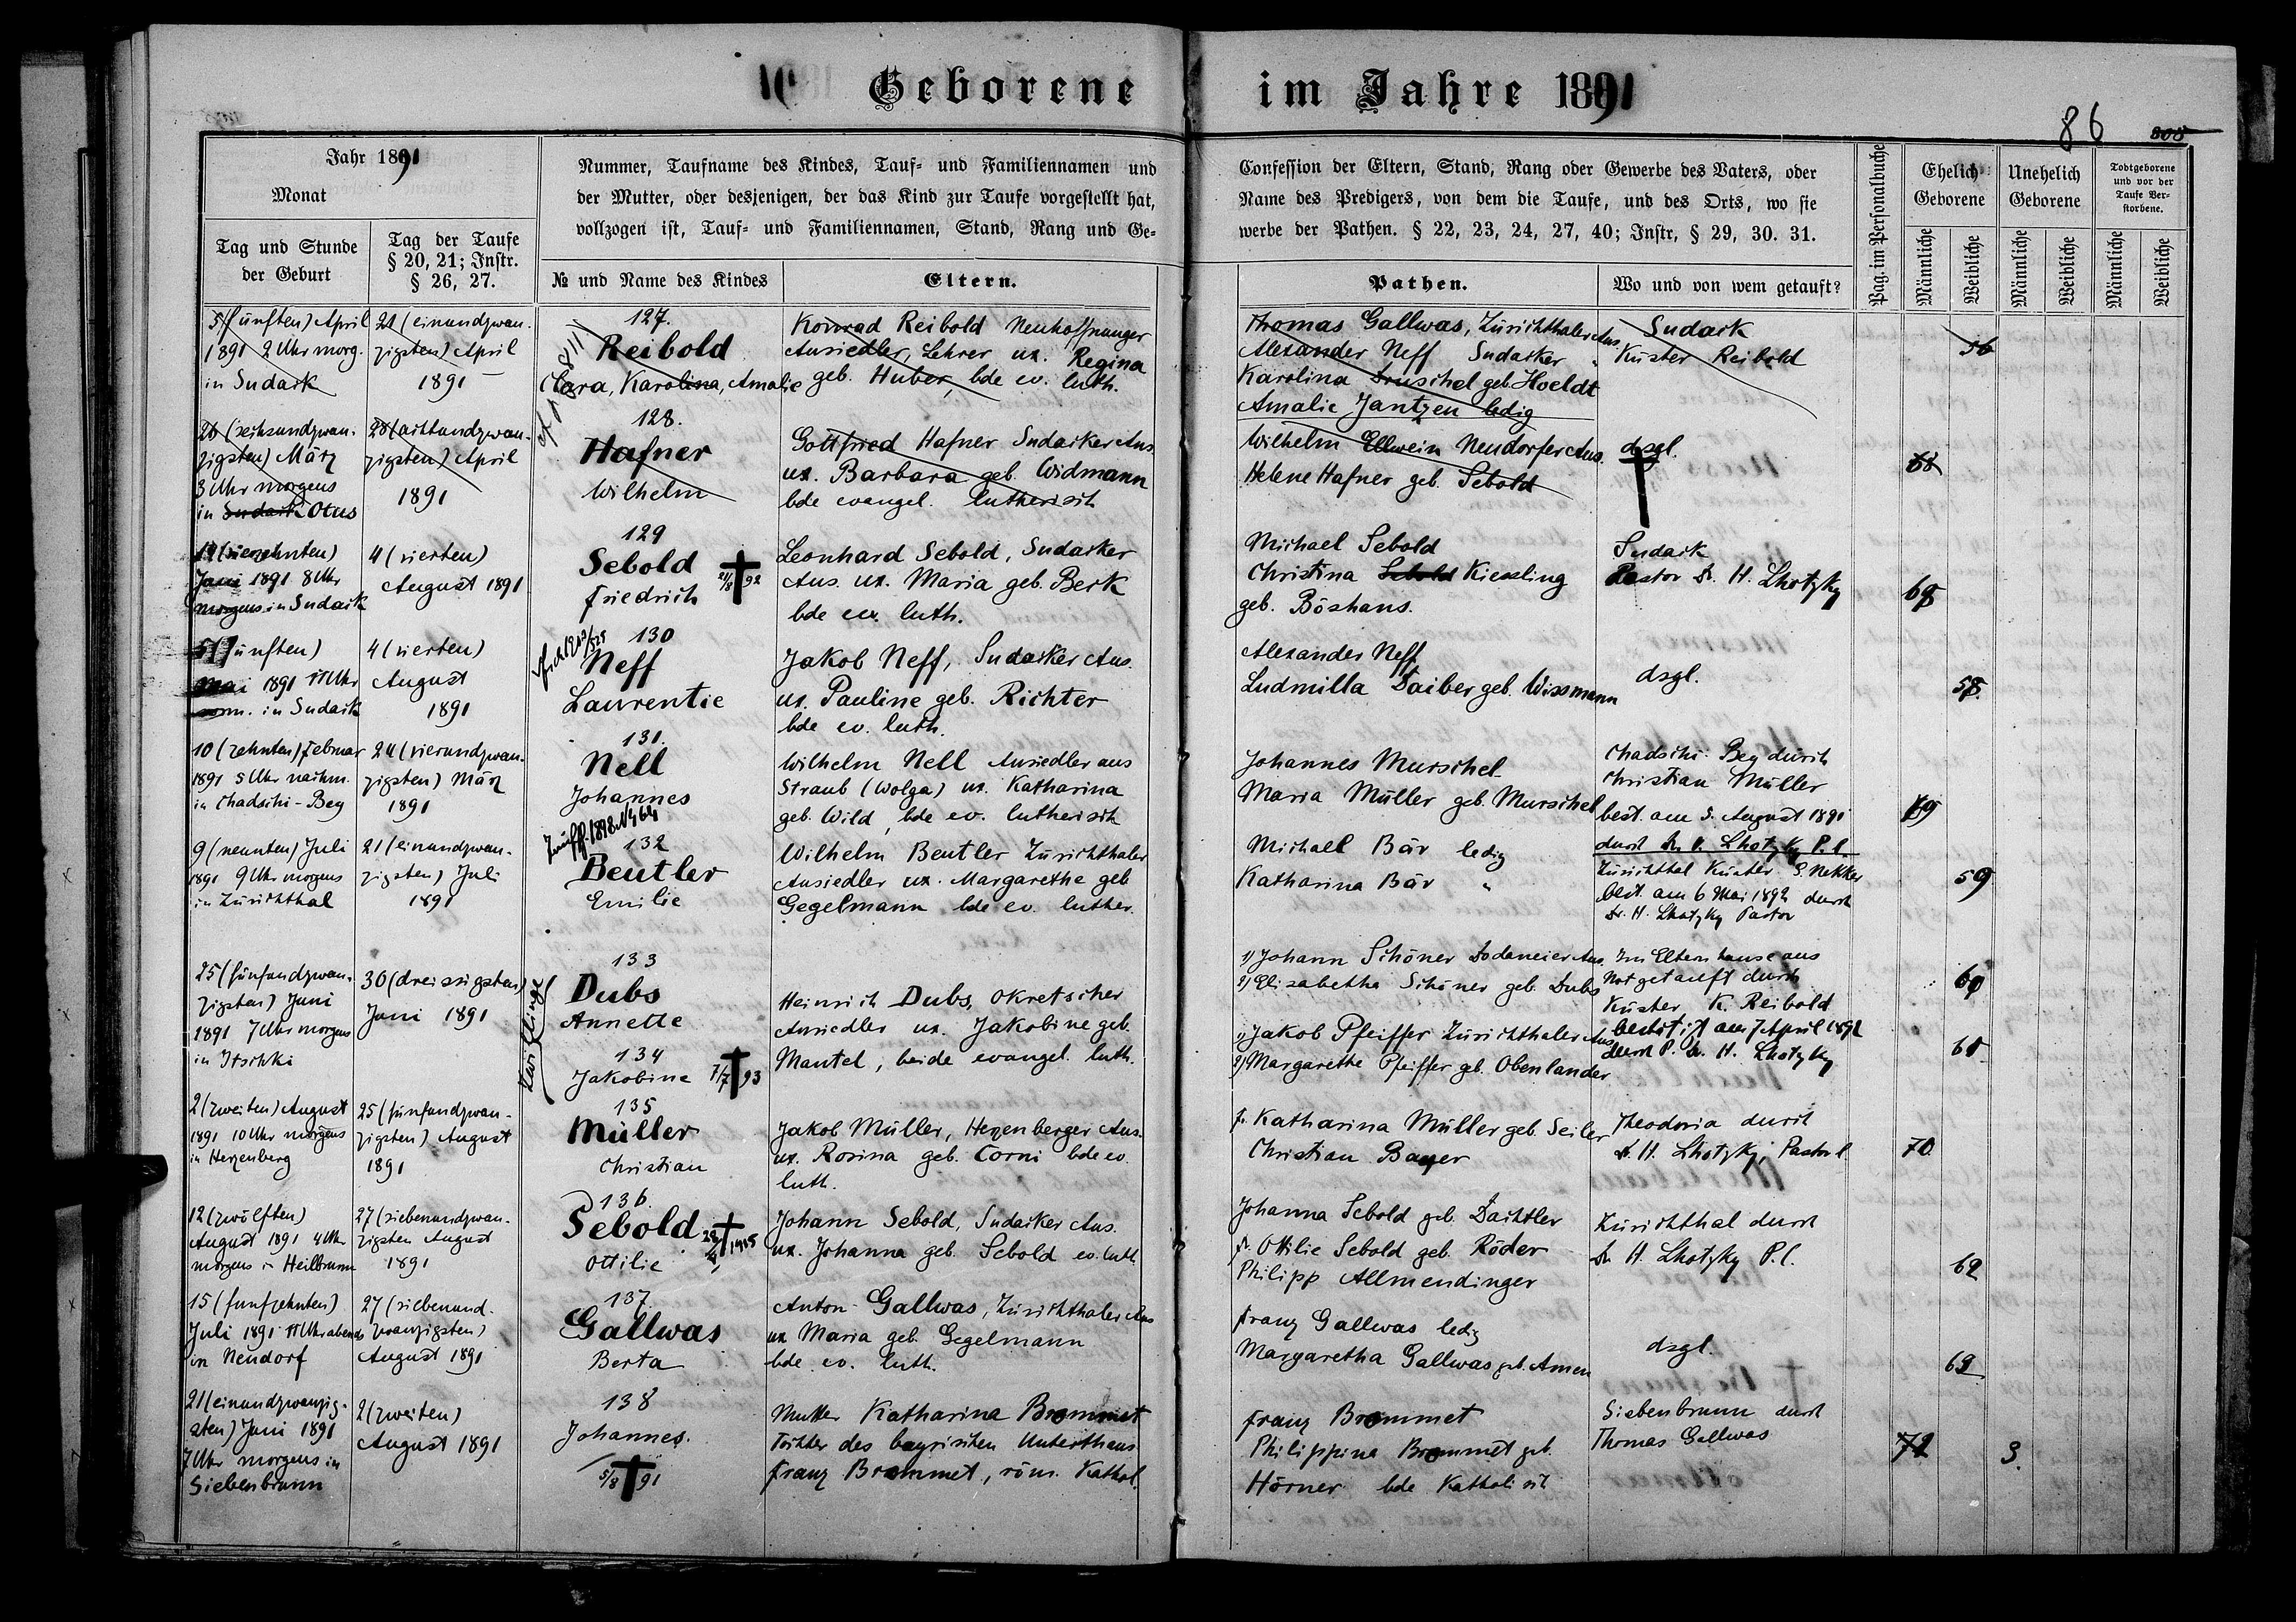 Geborene im Jahre 1891
86 308
Jahr 1891
Monat
Tag und Stunde
der Geburt
Tag der Taufe
§ 20, 21; Instr.
§ 26, 27.
Nummer, Taufname des Kindes, Tauf- und Familiennamen und
der Mutter, oder desjenigen, der das Kind zur Taufe vorgestellt hat,
vollzogen ist, Tauf- und Familiennamen, Stand, Rang und Ge-
№ und Name des Kindes
Eltern.
Confession der Eltern, Stand, Rang oder Gewerbe des Vaters, oder
Name des Predigers, von dem die Taufe, und des Orts, wo sie
werbe der Pathen. § 22, 23, 24, 27, 40; Instr, § 29, 30. 31.
Pathen.
Wo und von wem getauft?
Pag. im Personalbuche
Ehelich
Geborene
Männliche
Weibliche
Unehelich
Geborene
Männliche
Weibliche
Todtgeborene
und vor der
Taufe Ver-
storbene.
Männliche
Weibliche
5 (fünften) April
1891 2 Uhr morg.
in Sudark
21 (einundzwan-
zigsten) April
1891
127.
Reibold
Clara, Karolina, Amalie
Konrad Reibold Neuhoffnunger
Ansiedler, Lehrer ux. Regina
geb. Huber, bde ev. luth.
Thomas Gallwas, Zürichthaler Ans.
Alexander Neff Sudarker "
Karolina Druschel geb. Hoeldt
Amalie Jantzen ledig
Sudark
Küster Reibold
56
26 (sechsundzwan-
zigsten) März
3 Uhr morgens
in Sudark Otus
28 (achtundzwan-
zigsten) April
1891
128.
Hafner
Wilhelm
Gottfried Hafner Sudarker Ans.
ux. Barbara geb. Widmann
bde evangel. lutherisch
Wilhelm Ellwein Neudorfer Ans.
Helene Hafner geb. Sebold
dsgl.
68
14 (vierzehnten)
Juni 1891 8 Uhr
morgens in Sudark
4 (vierten)
August 1891
129
Sebold 21/8 † 92
Friedrich
Leonhard Sebold, Sudarker
Ans. ux. Maria geb. Berk
bde ev. luth.
Michael Sebold
Christina Sebold Kiessling
geb. Böshans.
Sudark
Pastor Dr. H. Lhotzky
68
5 (fünften)
Mai 1891 11 Uhr
vorm. in Sudark
4 (vierten)
August
1891
130
Neff
Laurentie
Jakob Neff, Sudarker Ans.
ux. Pauline geb. Richter
bde ev. luth.
Alexander Neff
Ludmilla Daiber geb. Wissmann
dsgl.
58.
10 (zehnten) Februar
1891 5 Uhr nachm.
in Chadschi-Beg
24 (vierundzwan-
zigsten) März
1891
131.
Nell
Johannes
Wilhelm Nell Ansiedler aus
Straub (Wolga) ux. Katharina
geb. Wild, bde ev. lutherisch
Johannes Murschel
Maria Müller geb. Murschel
Chadschi-Beg durch
Christian Müller
best. am 5. August 1891
durch Dr. H. Lhotzky P. l.
69
9 (neunten) Juli
1891 9 Uhr morgens
in Zürichthal
21 (einundzwan-
zigsten) Juli
1891
132
Beutler
Emilie
Wilhelm Beutler Zürichthaler
Ansiedler ux. Margarethe geb
Gegelmann bde ev. luther.
Michael Bär ledig
Katharina Bär "
Zürichthal Küster E. Nekker
best. am 6 Mai 1892 durch
Dr. H. Lhotzky Pastor
59
25 (fünfundzwan-
zigsten) Juni
1891 7 Uhr morgens
in Itschki
30 (dreissigsten)
Juni 1891
Zwillinge
133
Dubs
Annette
134
Jakobine 7/7 † 93
Heinrich Dubs, Okretscher
Ansiedler ux. Jakobine geb.
Mantel, beide evangel. luth.
1) Johann Schöner Dodaneier Ans.
2) Elisabetha Schöner geb. Dubs
1) Jakob Pfeiffer Zürichthaler Ans.
2) Margarethe Pfeiffer geb. Obenlander
Im Elternhause aus
Not getauft durch
Küster K. Reibold
bestätigt am 7 April 1892
durch P. Dr. H. Lhotzky
60
61
2 (zweiten) August
1891 10 Uhr morgens
in Herzenberg
25 (fünfundzwan-
zigsten) August
1891
135
Müller
Christian
Jakob Müller, Herzenberger Ans.
ux. Rosina geb. Corni bde ev.
luth.
fr. Katharina Müller geb. Seiler
Christian Bayer
Theodoria durch
Dr. H. Lhotzky, Pastor l.
70
12 (zwölften)
August 1891 4 Uhr
morgens in Heilbrunn
27 (siebenundzwan-
zigsten August
1891
136.
Sebold
Ottilie
Johann Sebold, Sudarker Ans.
ux. Johanna geb. Sebold ev. luth.
Johanna Sebold geb. Dachtler
fr. Ottilie Sebold geb. Röder
Philipp Allmendinger
Zürichthal durch
Dr H. Lhotzky P. l.
62
15 (fünfzehnten)
Juli 1891 11 Uhr abends
in Neudorf
27 (siebenund-
zwanzigsten)
August 1891
137.
Gallwas
Berta
Anton Gallwas, Zürichthaler Ans
ux Maria geb. Gegelmann
bde ev. luth.
Franz Gallwas ledig
Margaretha Gallwas geb. Amen
dsgl.
63
21 (einundzwanzig-
sten) Juni 1891
7 Uhr morgens in
Siebenbrunn
2 (zweiten)
August 1891
138
Johannes.
5/8 † 91
Mutter Katharina Brommet
Tochter des bayrischen Unterthans
Franz Brommet, röm. Kathol.
Franz Brommet
Philippina Brommet geb.
Hörner bde Katholisch
Siebenbrunn durch
Thomas Gallwas
3.